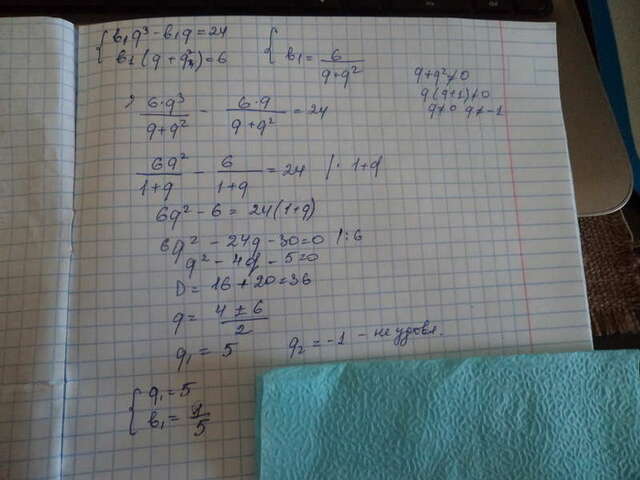 { b₁q³ - b₁q = 24
b₁(q + q²) = 6
{ b₁ = 6/(q+q²)
q+q²≠0
q(q+1)≠0
q≠0 q≠-1
(6·q³)/(q+q²) - (6·q)/(q+q²) = 24
6q²/(1+q) - 6/(1+q) = 24 |· 1+q
6q² - 6 = 24(1+q)
6q² - 24q - 30=0 |:6
q² - 4q - 5=0
D= 16+20=36
q= (4±6)/2
q₁ = 5 q₂ = -1 - не удовл.
{ q₁=5
b₁= 1/5